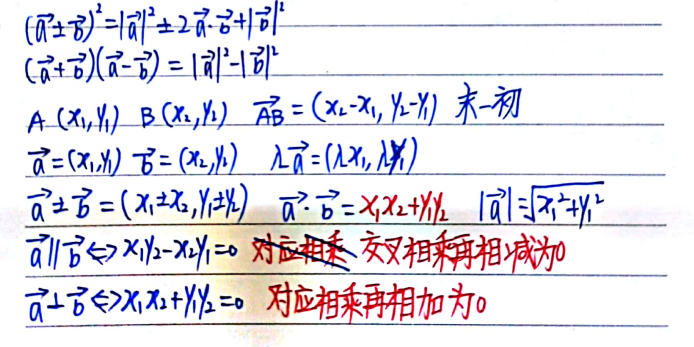 (a⃗±b⃗)²=|a⃗|²±2a⃗·b⃗+|b⃗|²
(a⃗+b⃗)(a⃗-b⃗)=|a⃗|²-|b⃗|²
A(x₁,y₁) B(x₂,y₂) AB⃗=(x₂-x₁,y₂-y₁)末-初
a⃗=(x₁,y₁) b⃗=(x₂,y₂) λa⃗=(λx₁,λy₁)
a⃗±b⃗=(x₁±x₂,y₁±y₂) a⃗·b⃗=x₁x₂+y₁y₂ |a⃗|=√(x₁²+y₁²)
a⃗∥b⃗⇔x₁y₂-x₂y₁=0 对应相乘 交叉相乘再相减为0
a⃗⊥b⃗⇔x₁x₂+y₁y₂=0 对应相乘再相加为0